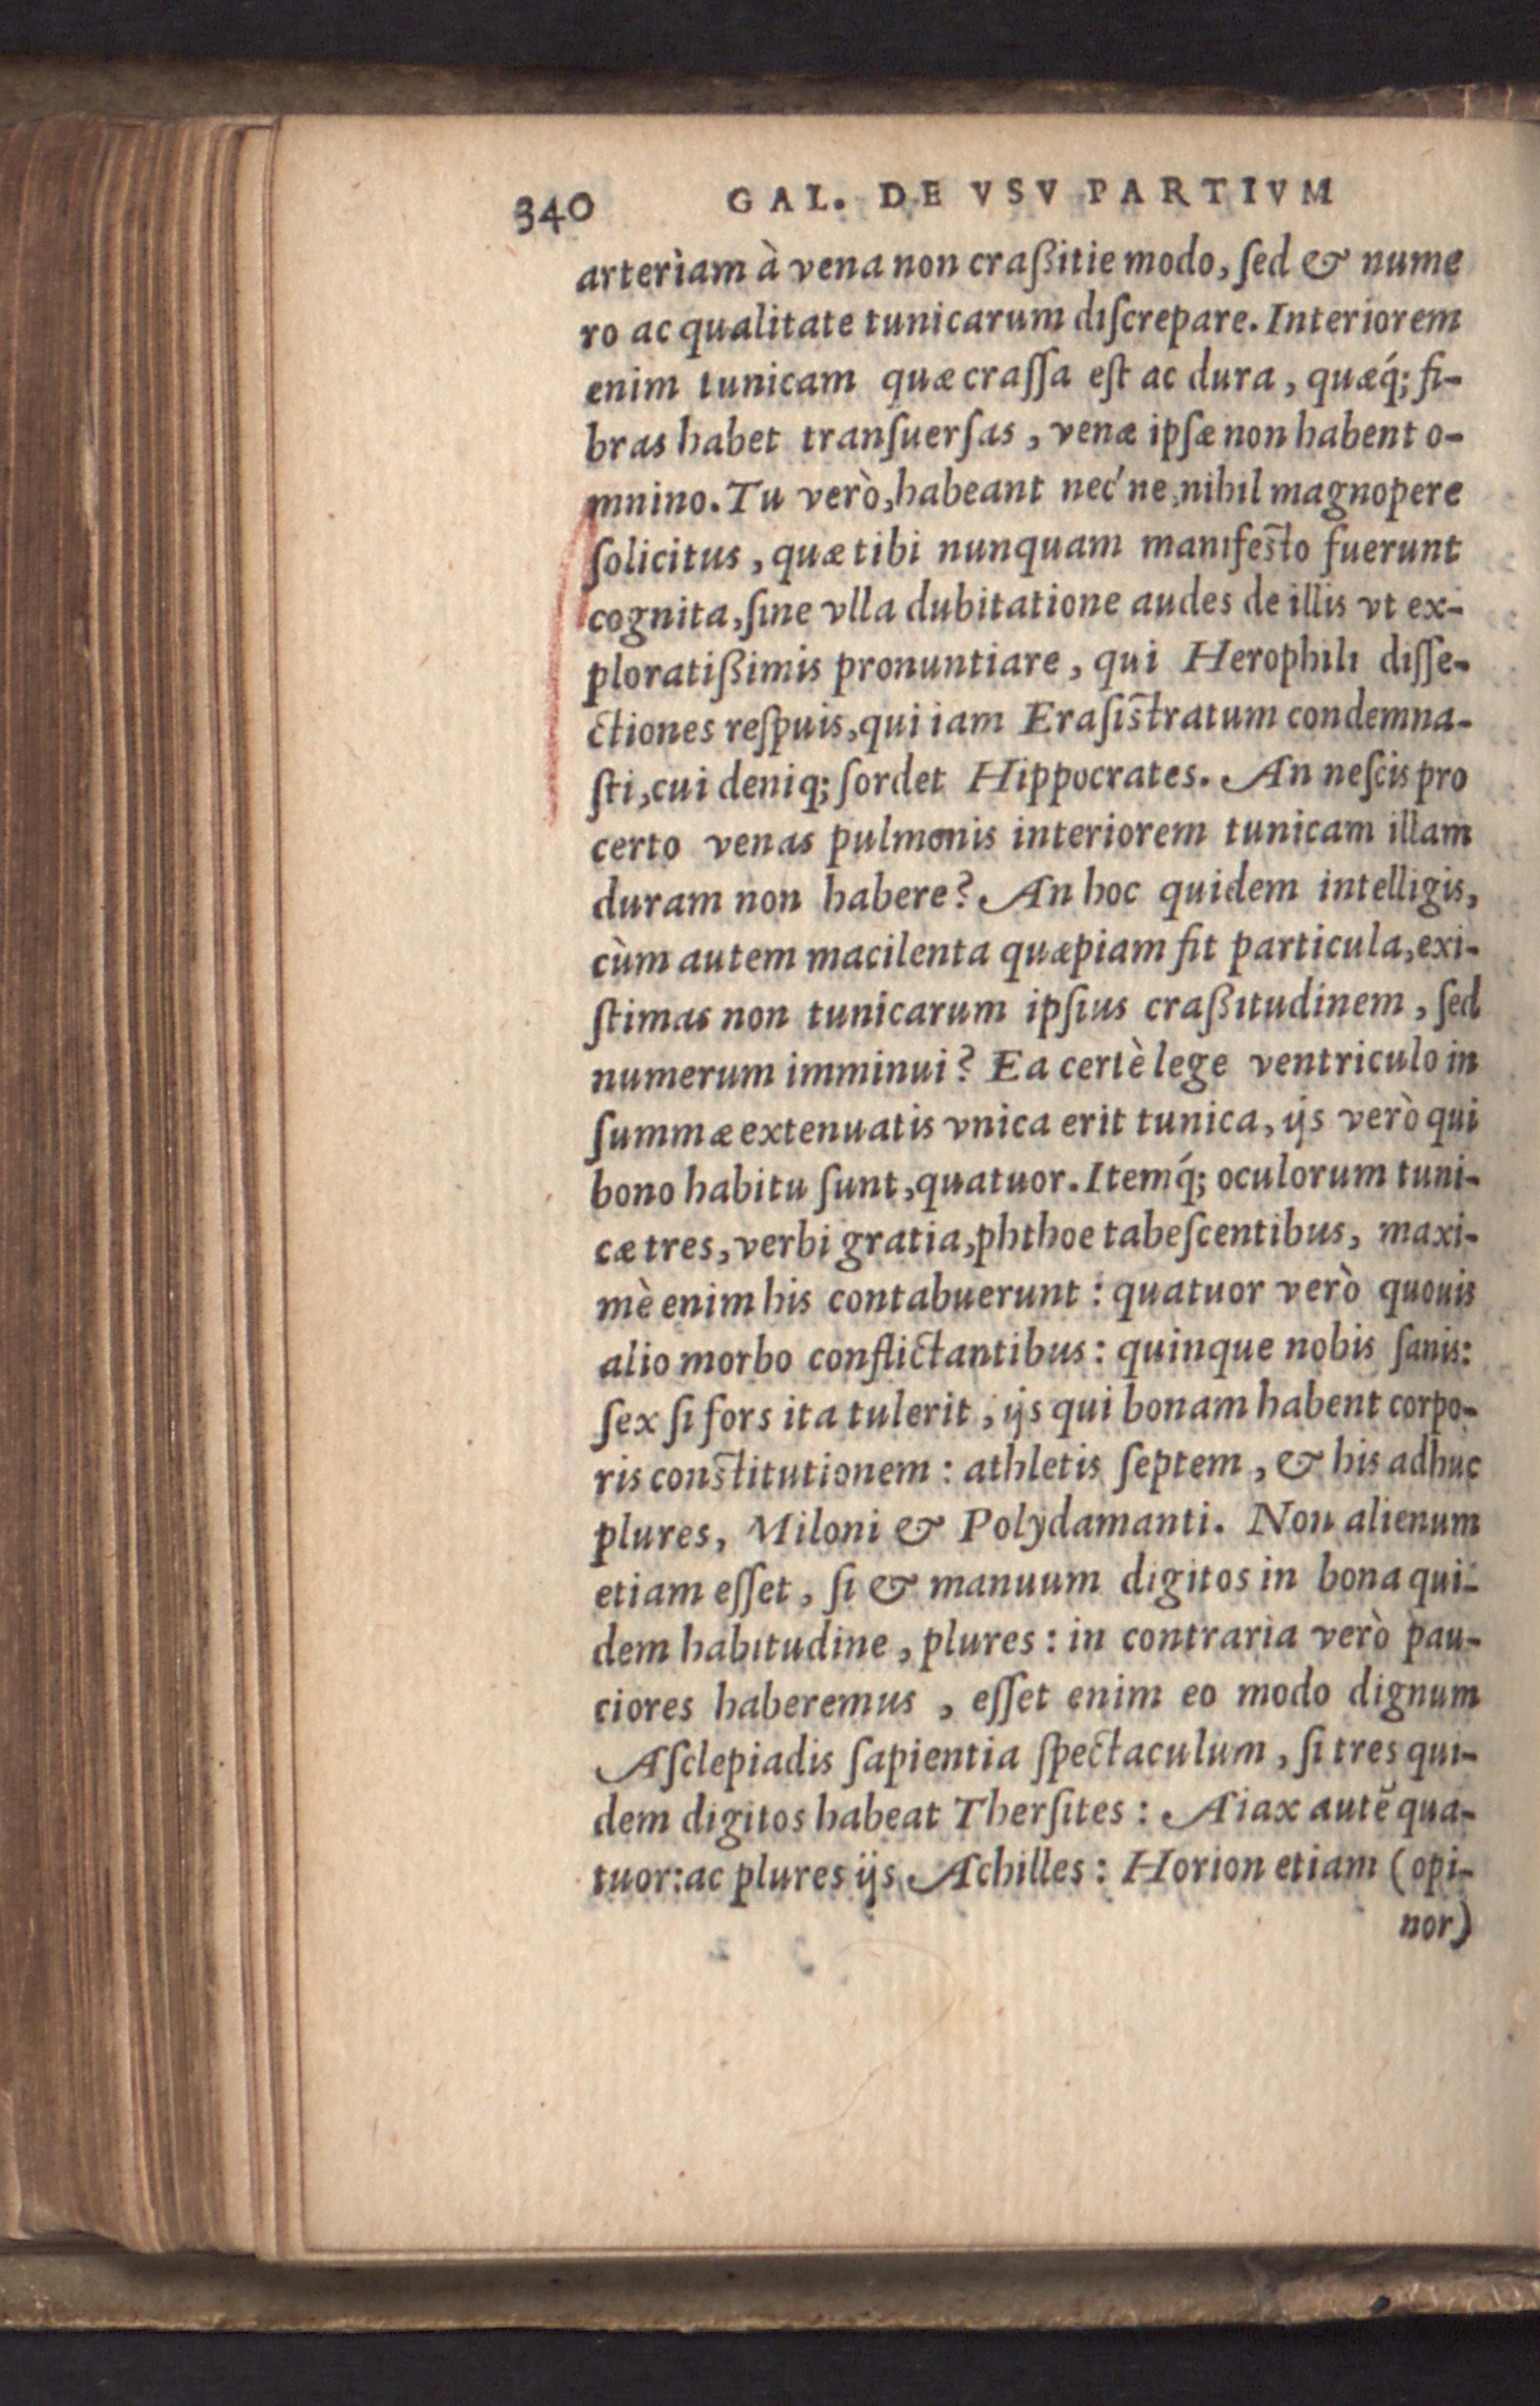 340 GAL. DE VSV PARTIVM
arteriam à vena non craßitie modo, ſed & nume
ro ac qualitate tunicarum diſcrepare. Interiorem
enim tunicam quæ craſſa eſt ac dura, quæq́; fi-
bras habet tranſuerſas, venæ ipſæ non habent o-
mnino. Tu verò, habeant nec'ne, nihil magnopere
ſolicitus, quæ tibi nunquam manifeſto fuerunt
cognita, ſine vlla dubitatione audes de illis vt ex-
ploratißimis pronuntiare, qui Herophili diſſe-
ctiones reſpuis, qui iam Eraſiſtratum condemna-
ſti, cui deniq; ſordet Hippocrates. An neſcis pro
certo venas pulmonis interiorem tunicam illam
duram non habere? An hoc quidem intelligis,
cùm autem macilenta quæpiam fit particula, exi-
ſtimas non tunicarum ipſius craßitudinem, ſed
numerum imminui? Ea certè lege ventriculo in
ſummæ extenuatis vnica erit tunica, ijs verò qui
bono habitu ſunt, quatuor. Itemq́; oculorum tuni-
cæ tres, verbi gratia, phthoe tabeſcentibus, maxi-
mè enim his contabuerunt: quatuor verò quouis
alio morbo conflictantibus: quinque nobis ſanis:
ſex ſi fors ita tulerit, ijs qui bonam habent corpo-
ris conſtitutionem: athletis ſeptem, & his adhuc
plures, Miloni & Polydamanti. Non alienum
etiam eſſet, ſi & manuum digitos in bona qui-
dem habitudine, plures: in contraria verò pau-
ciores haberemus, eſſet enim eo modo dignum
Aſclepiadis ſapientia ſpectaculum, ſi tres qui-
dem digitos habeat Therſites: Aiax autẽ qua-
tuor: ac plures ijs Achilles: Horion etiam (opi-
nor)